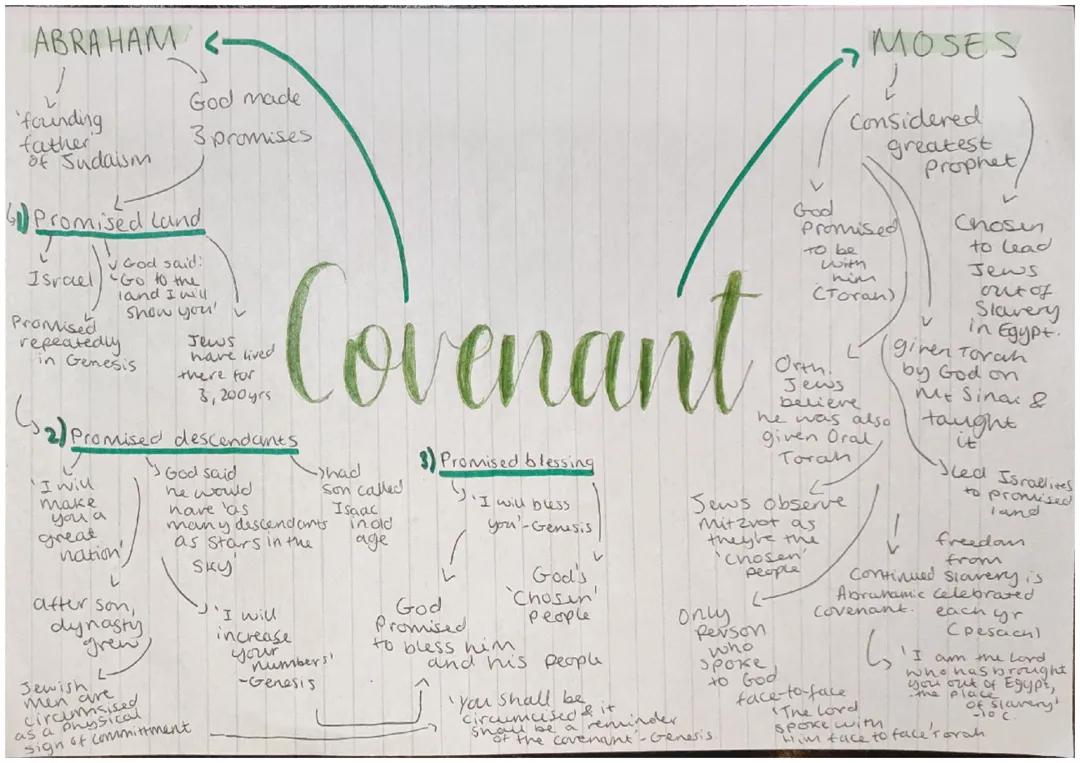 ABRAHAM
'founding
father'
of Judaism
God made
3 promises
1) Promised land
Israel
Promised
repeatedly
in Genesis
God said:
'Go to the
land I will
show you'
Jews
have lived
there for
3,200yrs
2) Promised descendants
'I will
make
you a
great
nation'
after son,
dynasty
grew
Jewish
men are
circumsised
as a physical
sign of commitment
God said
he would
have 'as
many descendants
as stars in the
sky'
'I will
increase
your
numbers'
-Genesis
had
son called
Isaac
in old
age
3) Promised blessing
'I will bless
you'-Genesis
God
Promised
to bless him
and his people
God's
'Chosen'
people
'You shall be
circumcised & it
shall be a reminder
of the covenant'-Genesis.
Covenant
MOSES
Considered
greatest
prophet
God
Promised
to be
with
him
(Torah)
Chosen
to lead
Jews
out of
Slavery
in Egypt.
given Torah
by God on
Mt Sinai &
taught
it
Orth.
Jews
believe
he was also
given Oral
Torah
Led Israelites
to promised
land
Jews observe
Mitzvot as
they're the
'chosen'
people
Only
person
who
spoke
to God
face-to-face
'The Lord
spoke with
him face to face' Torah
Continued
Abrahamic
covenant.
freedom
from
Slavery is
celebrated
each yr
(pesach)
'I am the Lord
who has brought
you out of Egypt,
the place
of slavery'
-10 C.